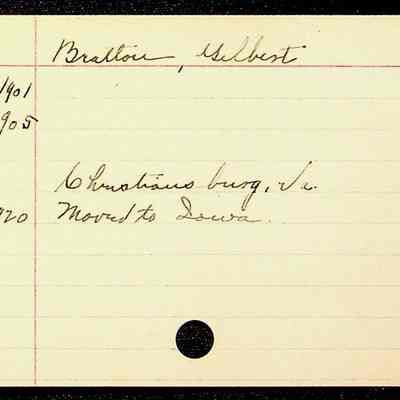 Bratton, Gilbert
1901
905
Christiansburg, Va.
920 Moved to Iowa.